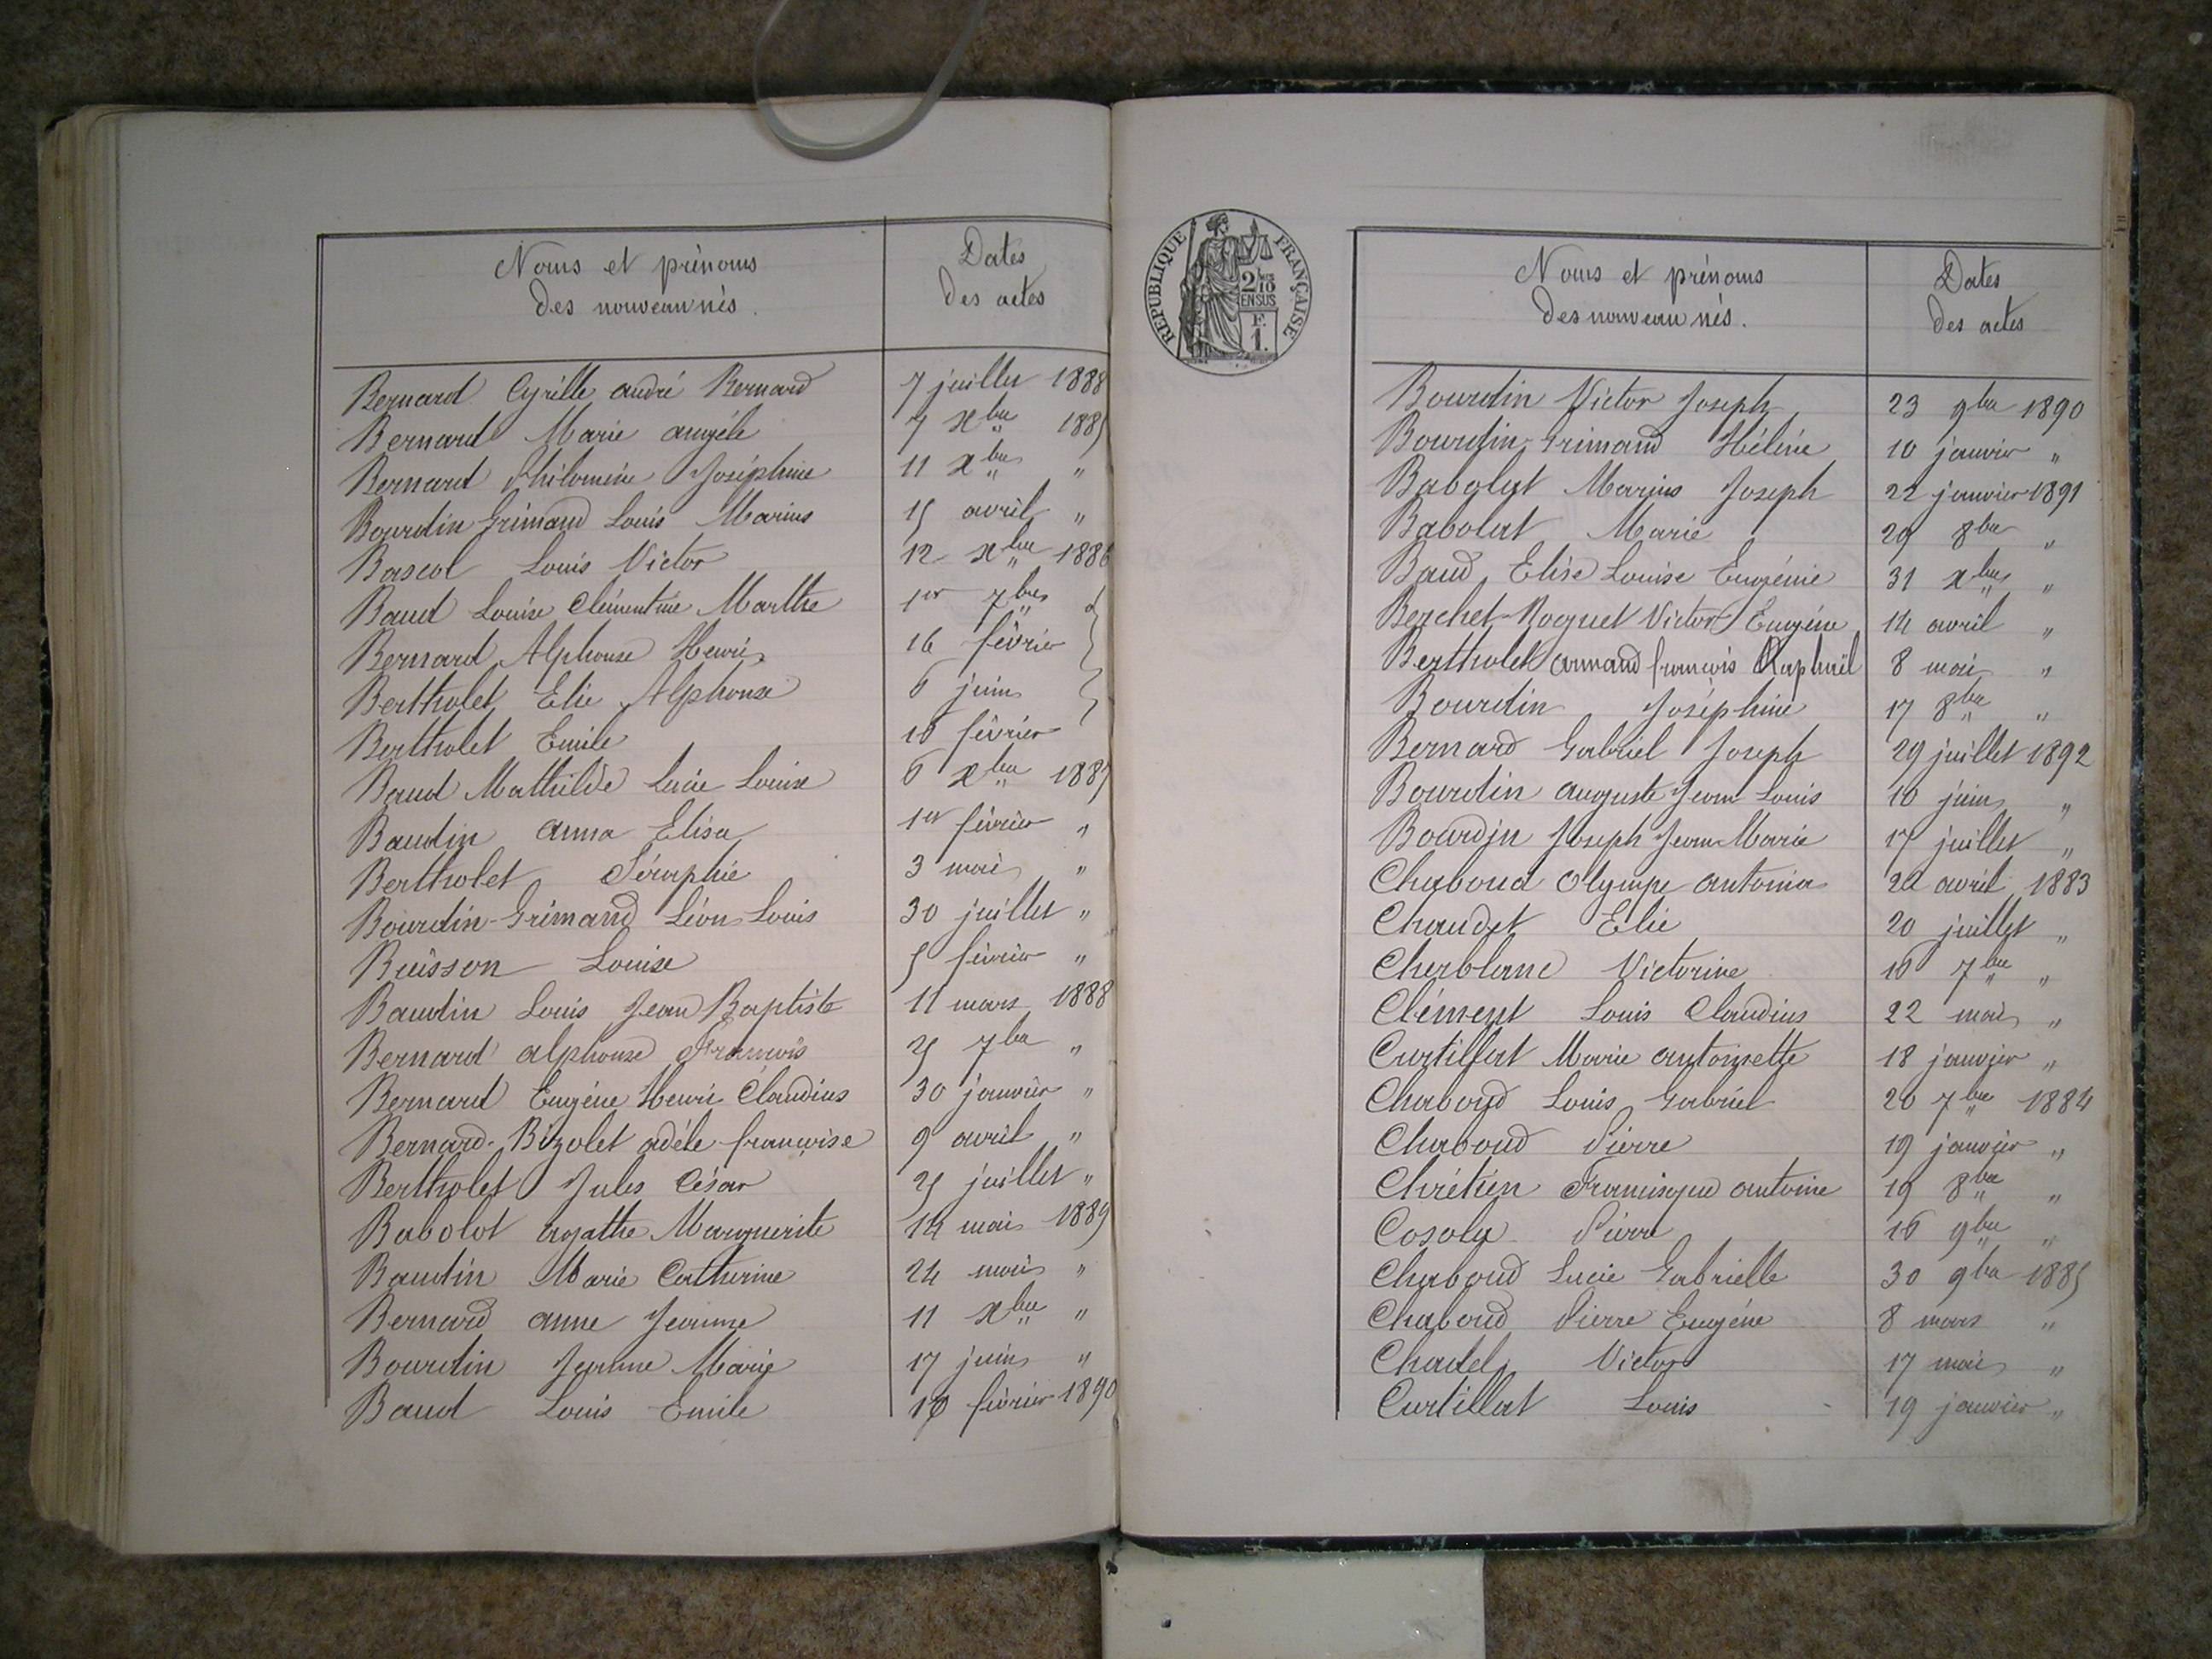 Noms et prénoms
des nouveau nés.
Dates
des actes
Bernard Cyrille André Bernard 7 juillet 1888
Bernard Marie Angèle 7 xbre 1885
Bernard Philomène Joséphine 11 xbre "
Bourdin Grimaud Louis Marius 15 avril "
Bascol Louis Victor 12 xbre 1886
Baud Louise Clémentine Marthe 1er 7bre
Bernard Alphonse Henri 16 février
Bertholet Elie Alphonse 6 juin
Bertholet Emile 16 février
Baud Mathilde Lucie Louise 6 xbre 1887
Baudin Anna Elisa 1er février "
Bertholet Séraphie 3 mai "
Bourdin-Grimaud Léon Louis 30 juillet "
Buisson Louise 5 février "
Baudin Louis Jean Baptiste 11 mars 1888
Bernard Alphonse François 25 7bre "
Bernard Eugène Henri Claudius 30 janvier "
Bernard-Bizolet Adèle Françoise 9 avril "
Bertholet Jules César 25 juillet "
Babolat Agathe Marguerite 14 mai 1889
Baudin Marie Catherine 24 mai "
Bernard Anne Jeanne 11 xbre "
Bourdin Jeanne Marie 17 juin "
Baud Louis Emile février 1890
REPUBLIQUE FRANÇAISE
2/10
EN SUS
F.
1.
Noms et prénoms
des nouveau nés.
Dates
des actes
Bourdin Victor Joseph 23 9bre 1890
Bourdin-Grimaud Hélène 10 janvier "
Babolat Marius Joseph 22 janvier 1891
Babolat Marie 29 8bre "
Baud Elise Louise Eugénie 31 xbre "
Berchet-Roguet Victor Eugène 14 avril "
Bertholet Armand François Raphaël 8 mai "
Bourdin Joséphine 17 8bre "
Bernard Gabriel Joseph 29 juillet 1892
Bourdin Auguste Jean Louis 10 juin "
Bourdin Joseph Jean Marie 17 juillet "
Chaboud Olympe Antonia 22 avril 1883
Chaudet Elie 20 juillet "
Cherblanc Victorine 16 7bre "
Clément Louis Claudius 22 mai "
Curtillat Marie Antoinette 18 janvier "
Chaboud Louis Gabriel 20 7bre 1884
Chaboud Pierre 19 janvier "
Chrétien Francisque Antoine 19 8bre "
Cosola Pierre 16 9bre "
Chaboud Lucie Gabrielle 30 9bre 1885
Chaboud Pierre Eugène 8 mars "
Chadel Victor 17 mai "
Curtillat Louis 19 janvier "